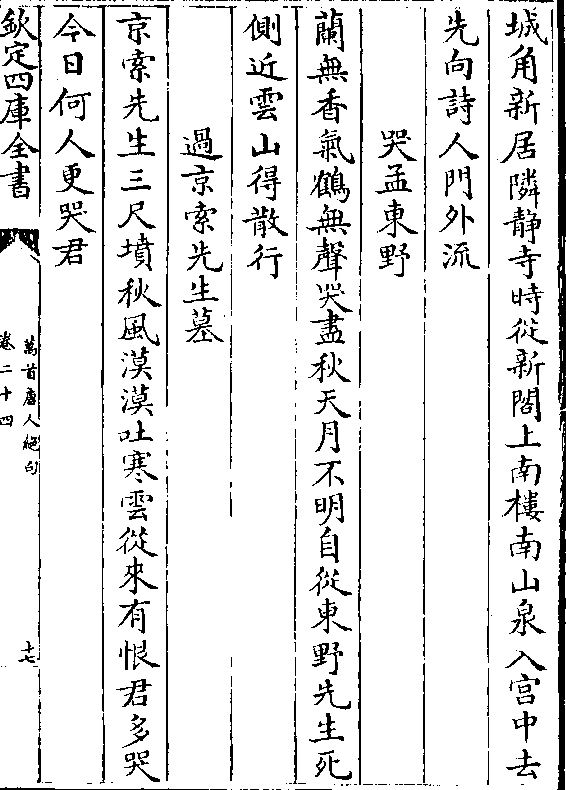 城角新居隣静寺時從新閣上南樓南山泉入宫中去
先向詩人門外流
哭孟東野
蘭無香氣鶴無聲哭盡秋天月不明自從東野先生死
側近雲山得散行
過京索先生墓
京索先生三尺墳秋風漠漠吐寒雲從來有恨君多哭
今日何人更哭君
欽定四庫全書
萬首唐人絶句
卷二十四
十七